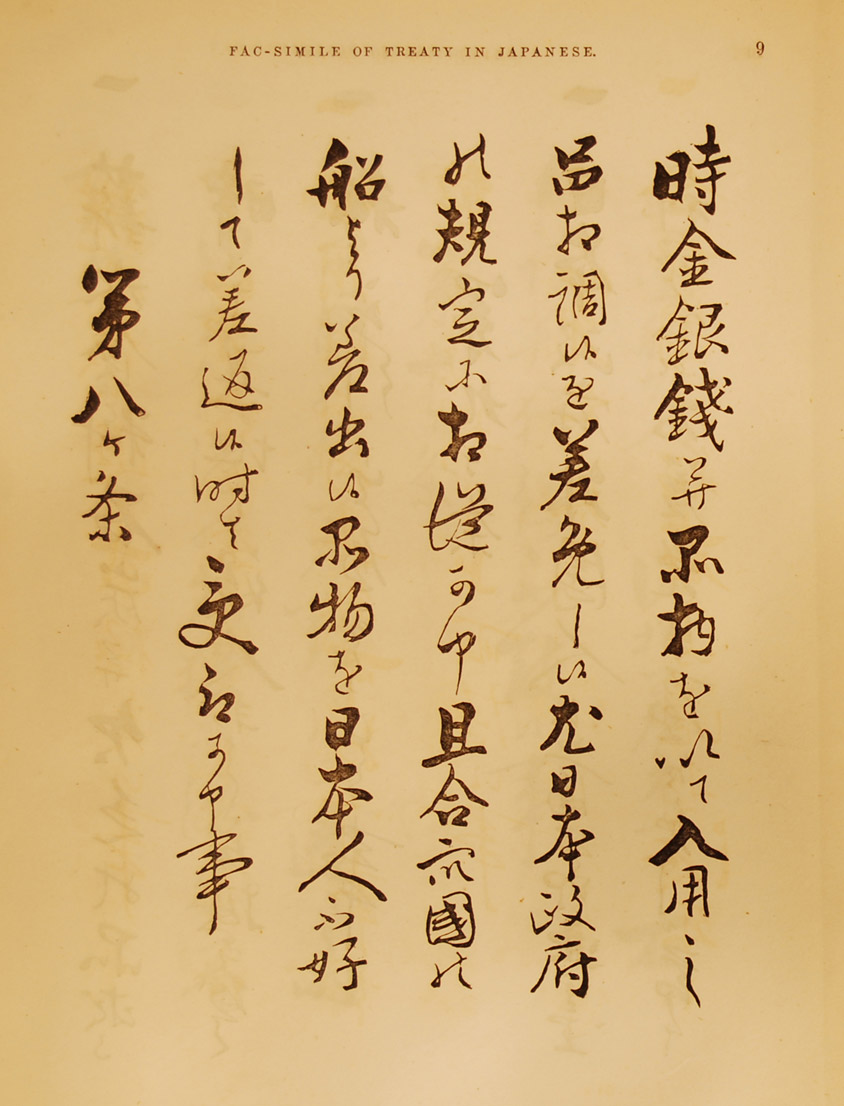 FAC-SIMILE OF TREATY IN JAPANESE.
9
時金銀銭并品物を以て入用之
品相調候を差免し候尤日本政府
の規定に相従可申且合衆國の
船より差出候品物を日本人不好
して差返候時は受取可申事
第八ヶ条